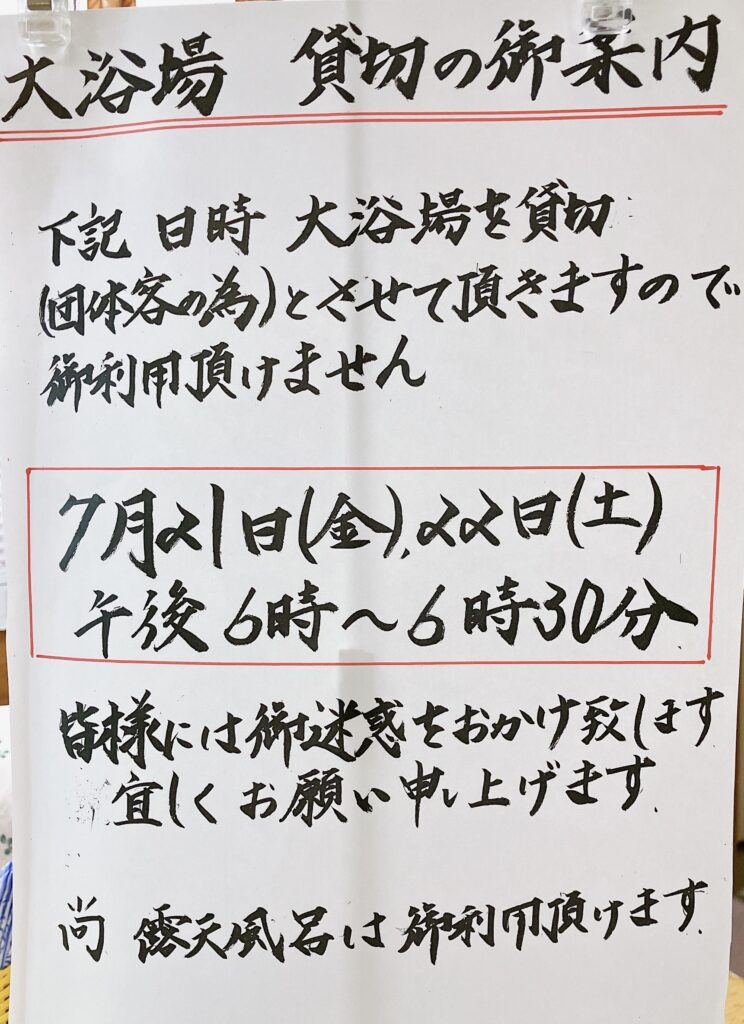 大浴場 貸切の御案内
下記 日時 大浴場を貸切
(団体客の為)とさせて頂きますので
御利用頂けません
7月21日(金)、22日(土)
午後6時〜6時30分
皆様には御迷惑をおかけ致します
宜しくお願い申し上げます.
尚 露天風呂は御利用頂けます.